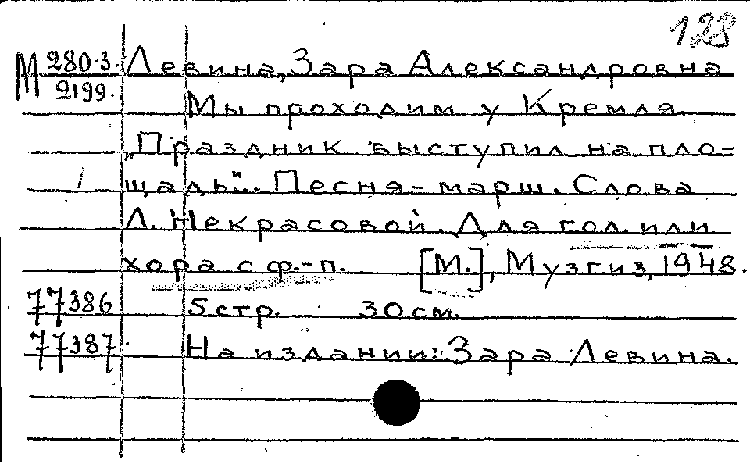 128
М 280-3. Левина, Зара Александровна
2199.
Мы проходим у Кремля
„Праздник выступил на пло-
щадь".. Песня-марш. Слова
Л. Некрасовой. Для гол. или
хора с ф.-п. [М.], Музгиз, 1948.
77386 5 стр. 30 см.
77387. На издании: Зара Левина.